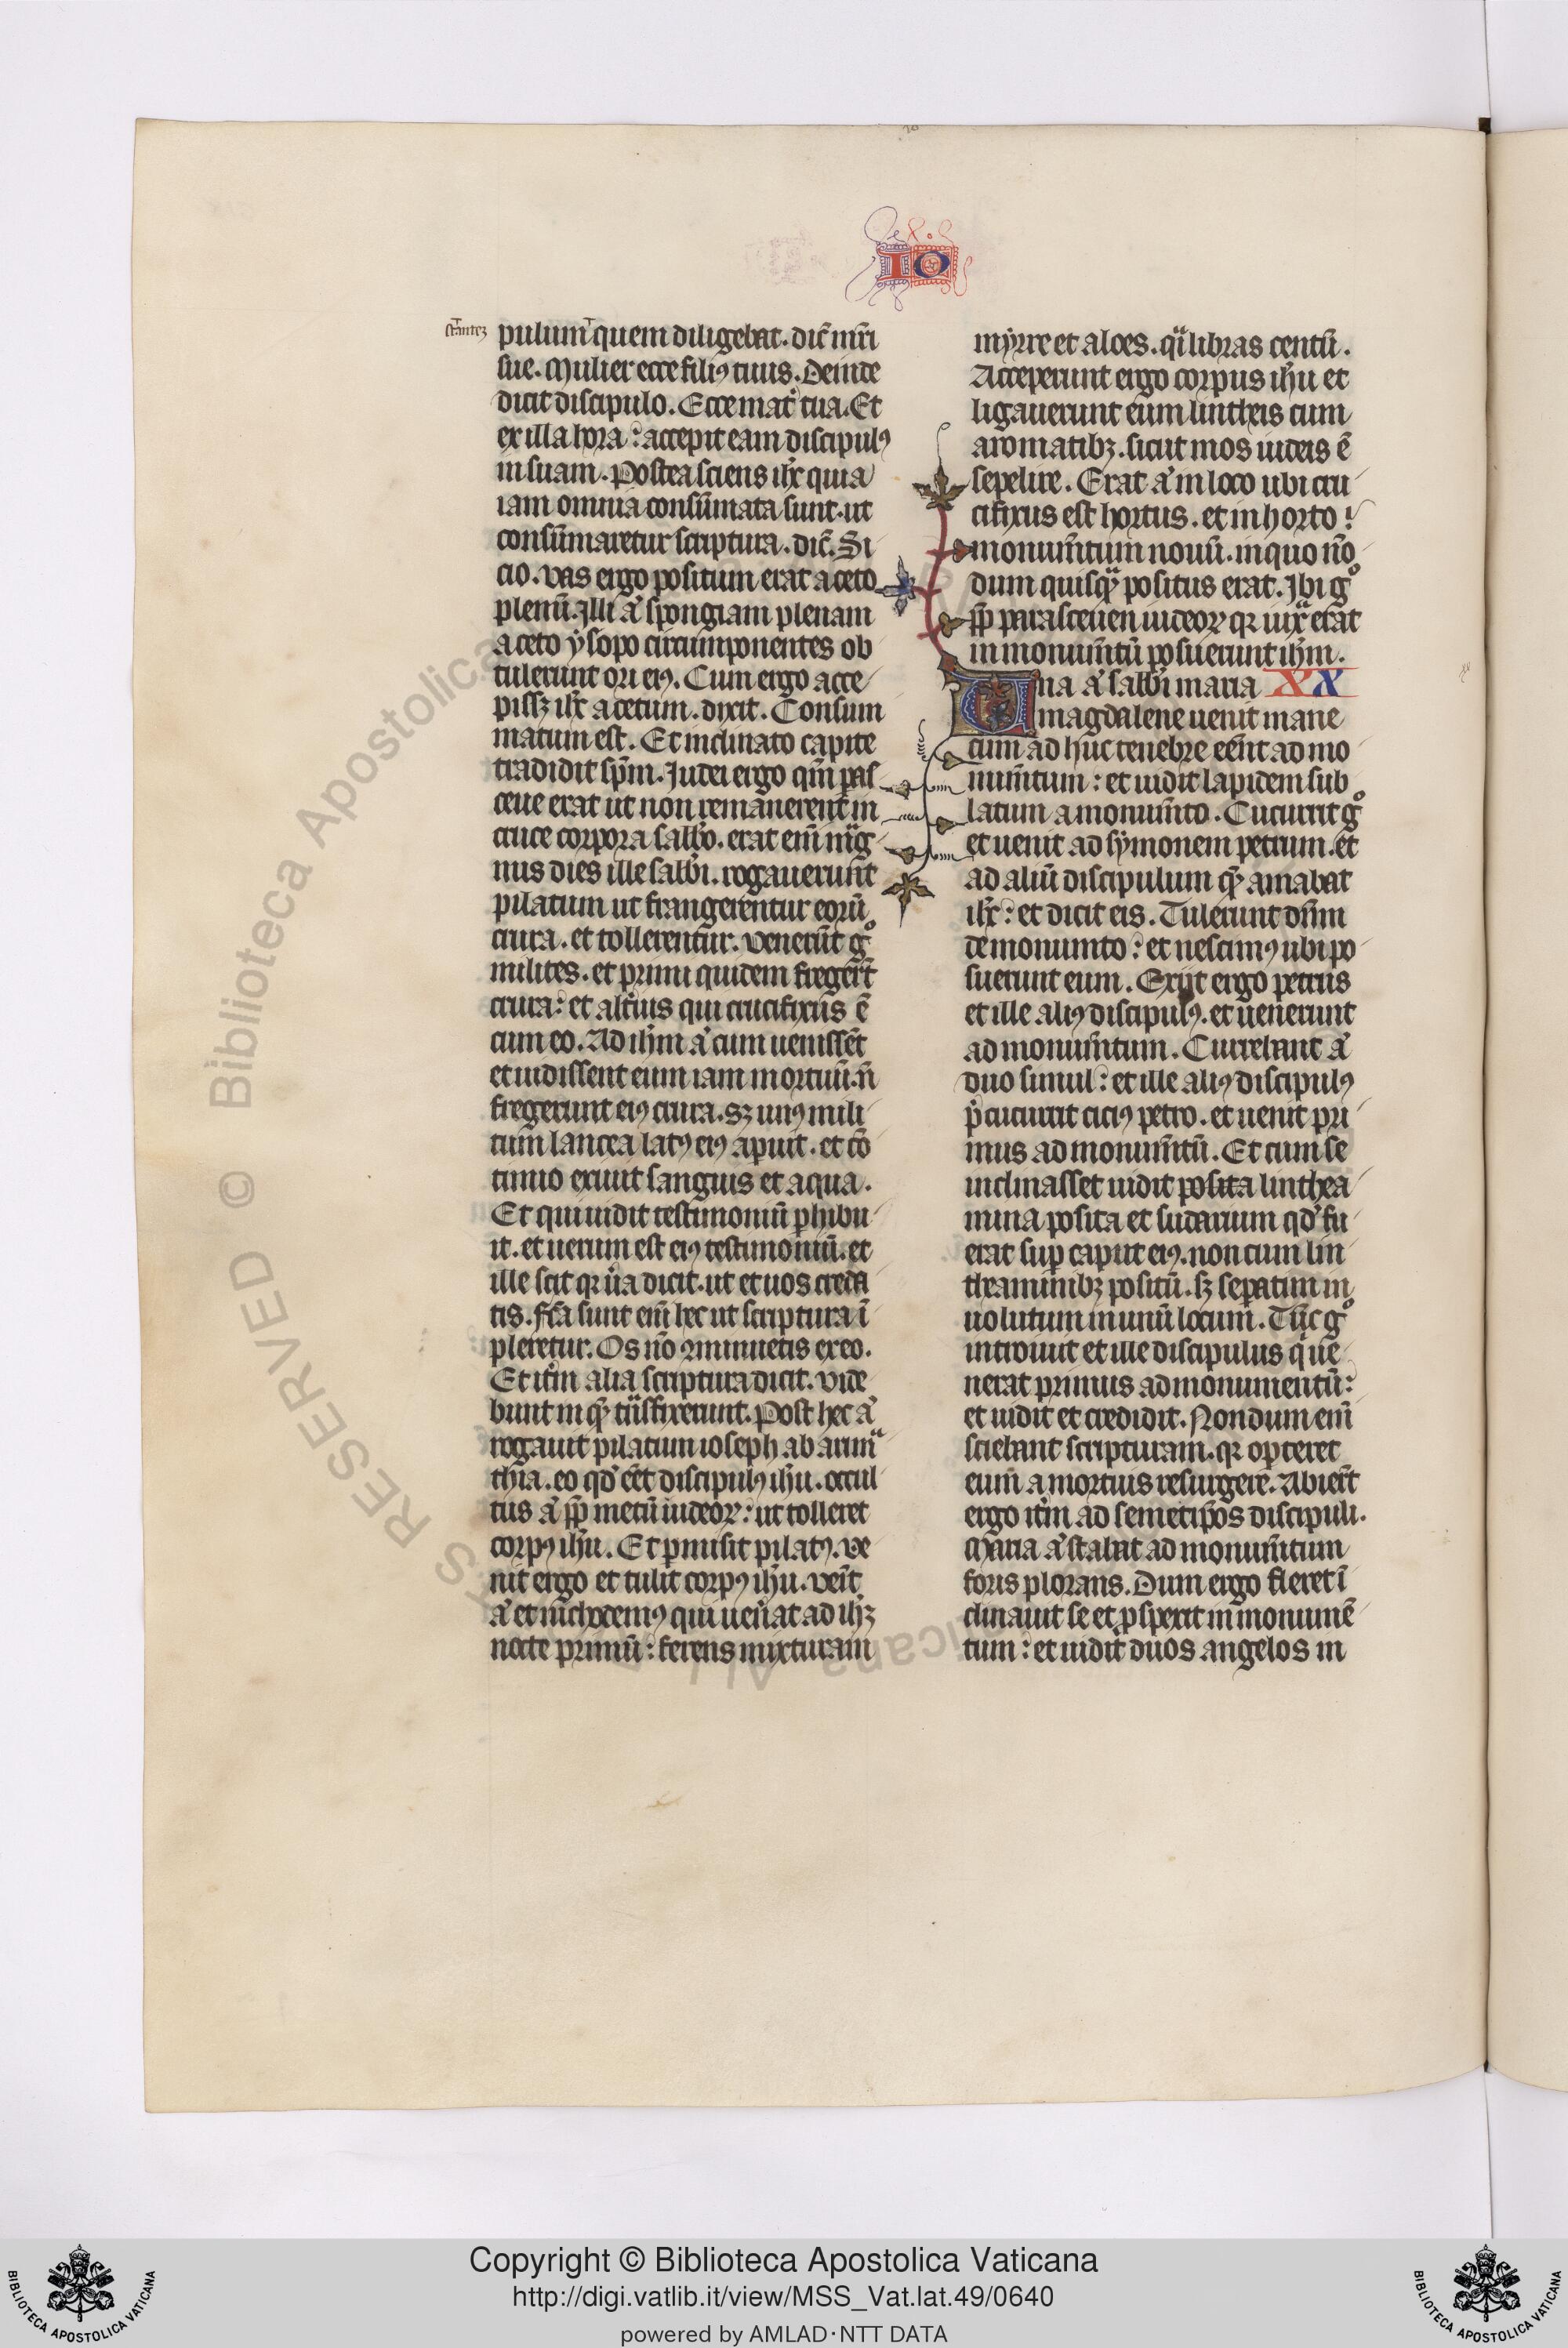 IO
stantez
pulum quem diligebat. dic̄ mr̄i
sue. Mulier ecce filiꝰ tuus. Deinde
dicit discipulo. Ecce mat̄ tua. Et
ex illa hora: accepit eam discipulꝰ
in suam. Postea sciens ihc̄ quia
iam omnia consūmata sunt. ut
consūmaretur scriptura. dic̄. Si
cio. Vas ergo positum erat aceto
plenū. Illi aͧ spongiam plenam
aceto ysopo circumponentes ob
tulerunt ori eiꝰ. Cum ergo acce
pissꝫ ihc̄ acetum. dixit. Consum
matum est. Et inclinato capite
tradidit sp̄m. Iudei ergo qm̄ pas
ceue erat ut non remanerent in
cruce corpora sabb̄o. erat eni͂ mag
nus dies ille sabb̄i. rogauerunt
pilatum ut frangerentur eorū
crura. et tollerentur. Venerūt gͦ
milites. et primi quidem fregert̄
crura: et alterius qui crucifixus ē
cum eo. Ad ihm̄ aͧ cum uenissēt
et uidissent eum iam mortuū. n̄
fregerunt eiꝰ crura. sꝫ unꝰ mili
tum lancea latꝰ eiꝰ apuit. et cō
tinuo exiuit sanguis et aqua.
Et qui uidit testimoniū ꝑhibu
it. et uerum est eiꝰ testimoniū. et
ille scit qꝛ ūa dicit. ut et uos creda
tis. Fcā sunt eni͂ hec ut scriptura ī
pleretur. Os nō ꝯminuetis ex eo.
Et itm̄ alia scriptura dicit. Vide
bunt in quē trāsfixerunt. Post hec aͧ
rogauit pilatum ioseph ab arima
thia. eo qd̓ eēt discipulꝰ ihu̅. occul
tus aͧ ꝓp̄ metū iudeoꝝ: ut tolleret
corpꝰ ihu̅. Et ꝑmisit pilatꝰ. Ve
nit ergo et tulit corpꝰ ihu̅. Venit
aͧ et nichodemꝰ qui uenāt ad ihꝫ
nocte primū: ferens mixturam
myrre et aloes. qͣi libras centū.
Acceperunt ergo corpus ihu̅ et
ligauerunt eum lintheis cum
aromatibꝫ. sicut mos iudeis ē
sepelire. Erat aͧ in loco ubi cru
cifixus est hortus. et in horto
monum̄tum nouū. in quo nō
dum quisqͣ positus erat. Ibi gͦ
ꝓp̄ parasceuen iudeoꝝ qꝛ iuxͣ erat
in monum̄tū posuerunt ihm̄.
Una aͧ sabb̄i maria XX
magdalene uenit mane
cum ad huc tenebre eēnt ad mo
num̄tum: et uidit lapidem sub
latum a monum̄to. Cucurrit gͦ
et uenit ad symonem petrum. et
ad aliū discipulum quē amabat
ihc̄: et dicit eis. Tulerunt dn̄m
de monumto: et nescimꝰ ubi po
suerunt eum. Exijt ergo petrus
et ille aliꝰ discipulꝰ. et uenerunt
ad monum̄tum. Currebant aͧ
duo simul: et ille aliꝰ discipulꝰ
p̄cucurrit citiꝰ petro. et uenit pri
mus ad monum̄tū. Et cum se
inclinasset uidit posita linthea
mina posita et sudarium qd̓ fu
erat sup̄ caput eiꝰ. non cum lin
theaminibꝫ positū. sꝫ sepatim in
uolutum in unū locum. Tūc gͦ
introiuit et ille discipulus qͥ ue
nerat primus ad monumentū:
et uidit et credidit. Nondum eni͂
sciebant scripturam. qꝛ oporteret
eum a mortuis resurgere. Abiert̄
ergo itm̄ ad semetip̄os discipuli.
Maria aͧ stabat ad monum̄tum
foris plorans. Dum ergo fleret ī
clinauit se et ꝓspexit in monumē
tum: et uidit duos angelos in
Copyright © Biblioteca Apostolica Vaticana
http://digi.vatlib.it/view/MSS_Vat.lat.49/0640
powered by AMLAD·NTT DATA
BIBLIOTECA APOSTOLICA VATICANA
BIBLIOTECA APOSTOLICA VATICANA